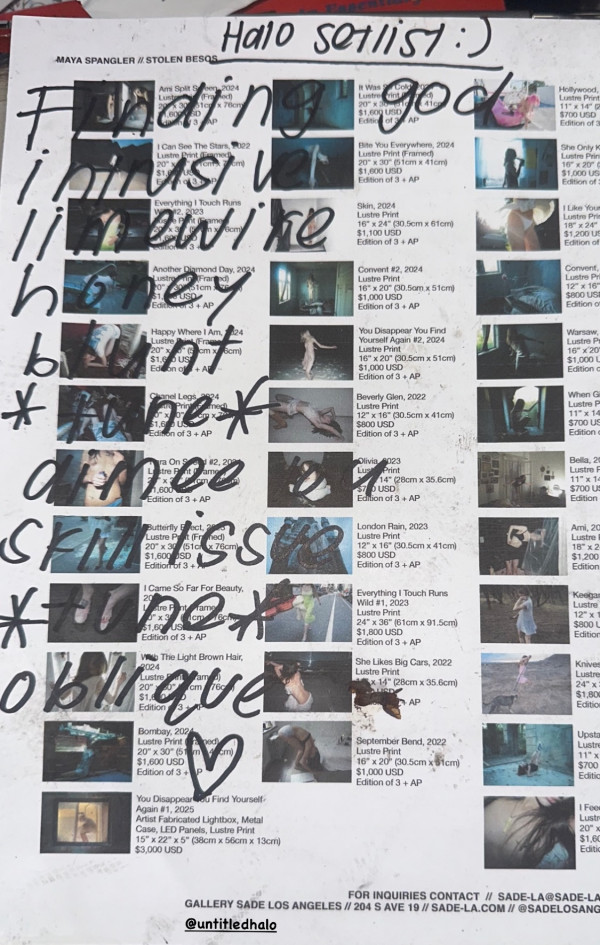 Halo setlist :)
MAYA SPANGLER // STOLEN BESOS
Finding god
limewire
honey
*tune*
skin issue
*tune*
oblique
Ami Split Screen, 2024
Lustre Print (Framed)
$1,600 USD
Edition of 3 + AP
I Can See The Stars, 2022
Lustre Print (Framed)
Edition of 3 + AP
Everything I Touch Runs
Wild #2, 2023
Lustre Print (Framed)
Edition of 3 + AP
Another Diamond Day, 2024
Lustre Print (Framed)
Edition of 3 + AP
Happy Where I Am, 2024
Lustre Print (Framed)
Edition of 3 + AP
Chanel Legs, 2024
Edition of 3 + AP
On Sound #2, 2023
Edition of 3 + AP
Butterfly Effect, 2023
Lustre Print (Framed)
20" x 30" (51cm x 76cm)
$1,600 USD
Edition of 3 + AP
I Came So Far For Beauty,
Edition of 3 + AP
With The Light Brown Hair,
2024
Lustre Print (Framed)
Edition of 3 + AP
Bombay, 2024
Lustre Print (Framed)
20" x 30" (51cm x 76cm)
$1,600 USD
Edition of 3 + AP
You Disappear You Find Yourself
Again #1, 2025
Artist Fabricated Lightbox, Metal
Case, LED Panels, Lustre Print
15" x 22" x 5" (38cm x 56cm x 13cm)
$3,000 USD
$1,600 USD
Edition of 3 + AP
Bite You Everywhere, 2024
Lustre Print (Framed)
20" x 30" (51cm x 41cm)
$1,600 USD
Edition of 3 + AP
Skin, 2024
Lustre Print
16" x 24" (30.5cm x 61cm)
$1,100 USD
Edition of 3 + AP
Convent #2, 2024
Lustre Print
16" x 20" (30.5cm x 51cm)
$1,000 USD
Edition of 3 + AP
You Disappear You Find
Yourself Again #2, 2024
Lustre Print
16" x 20" (30.5cm x 51cm)
$1,000 USD
Edition of 3 + AP
Beverly Glen, 2022
Lustre Print
12" x 16" (30.5cm x 41cm)
$800 USD
Edition of 3 + AP
Olivia, 2023
Lustre Print
11" x 14" (28cm x 35.6cm)
$700 USD
Edition of 3 + AP
London Rain, 2023
Lustre Print
12" x 16" (30.5cm x 41cm)
$800 USD
Edition of 3 + AP
Everything I Touch Runs
Wild #1, 2023
Lustre Print
24" x 36" (61cm x 91.5cm)
$1,800 USD
Edition of 3 + AP
She Likes Big Cars, 2022
Lustre Print
11" x 14" (28cm x 35.6cm)
+ AP
September Bend, 2022
Lustre Print
16" x 20" (30.5cm x 51cm)
$1,000 USD
Edition of 3 + AP
Hollywood,
Lustre Print
11" x 14"
$700 USD
Edition of 3
She Only
Lustre Print
16" x 20"
$1,000 US
Edition of
I Like You
Lustre Pr
18" x 24"
$1,200 US
Edition of
Convent,
Lustre Pr
12" x 16"
$800 USD
Edition o
Warsaw,
Lustre P
16" x 20"
$1,000 U
Edition o
When G
Lustre P
11" x 14
$700 US
Edition
Bella, 20
Lustre P
11" x 14
$700 US
Edition
Ami, 20
Lustre
18" x 2
$1,200
Edition
Keegan
Lustre
12" x
$800 U
Edition
Knives
Lustre
24" x
$1,80
Editio
Upsta
Lustr
11" x
$700
Editi
I Fee
Lustr
20" x
$1,60
Editi
FOR INQUIRIES CONTACT // SADE-LA@SADE-LA
GALLERY SADE LOS ANGELES // 204 S AVE 19 // SADE-LA.COM // @SADELOSANG
@untitledhalo